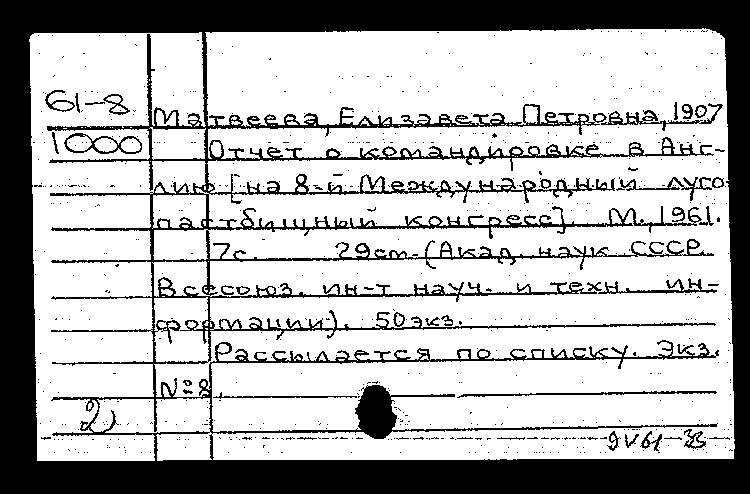 61-8
1000
Матвеева, Елизавета Петровна, 1907
Отчет о командировке в Анг-
лию [на 8-й Международный луго
пастбищный конгресс]. М., 1961.
7с. 29см. (Акад. наук СССР.
Всесоюз. ин-т науч. и техн. ин-
формации). 50 экз.
Рассылается по списку. Экз.
№8.
2
9 V 61